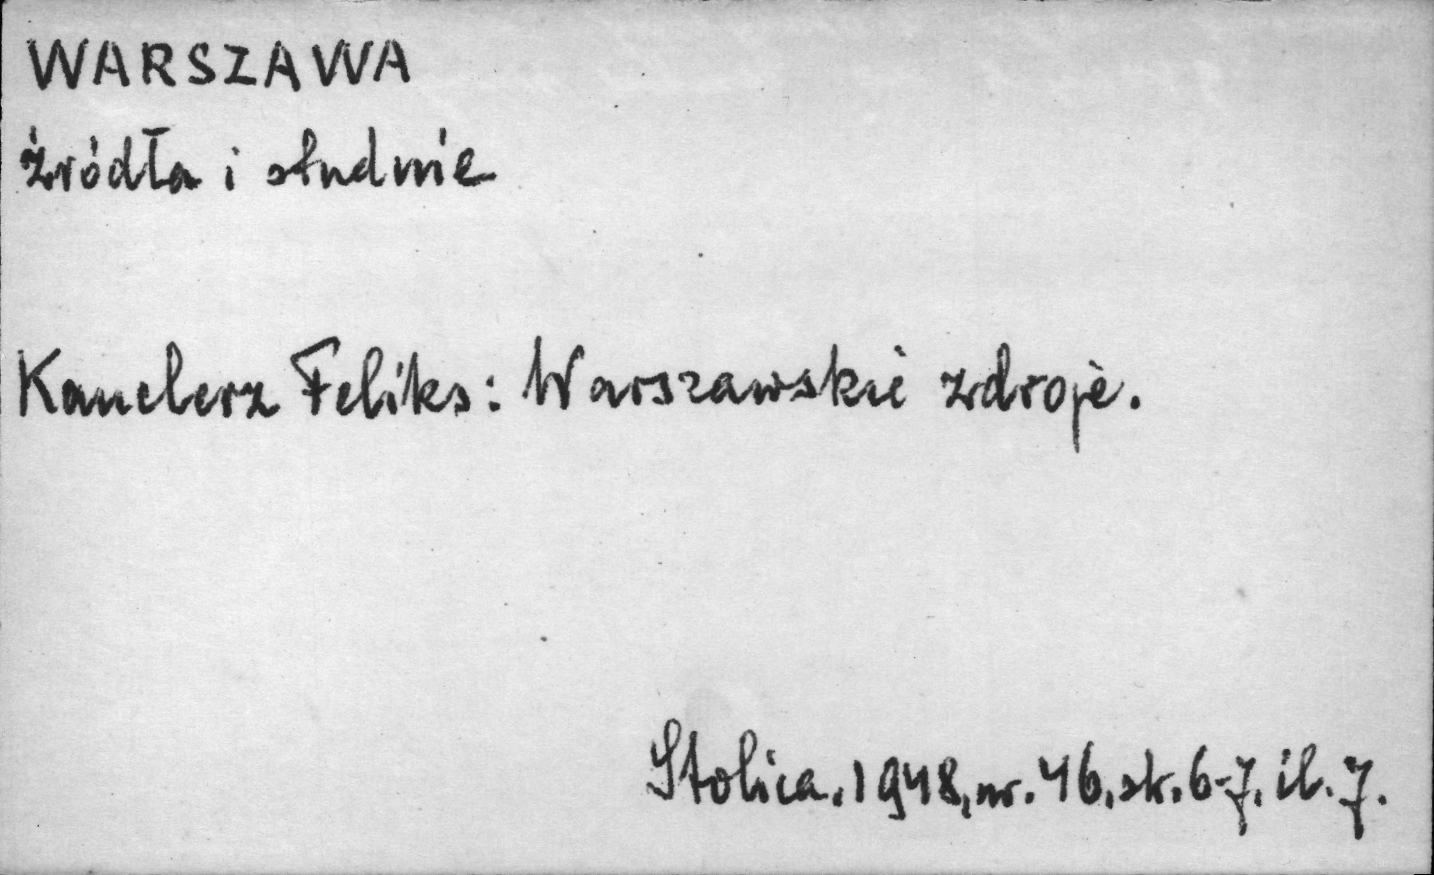 WARSZAWA
źródła i studnie
Kanclerz Feliks: Warszawskie zdroje.
Stolica. 1948, nr. 46, str. 6-7, il. 7.